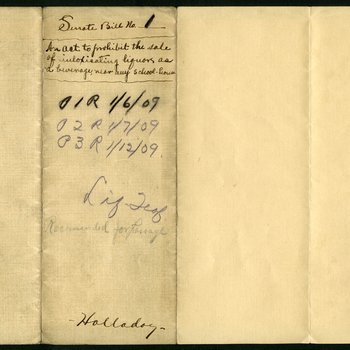 Senate Bill No. 1
An act to prohibit the sale
of intoxicating liquors as
a beverage near any school-house
P 1 R 1/6/09
P 2 R 1/7/09
P 3 R 1/12/09.
Recommended for Passage
-Holladay-